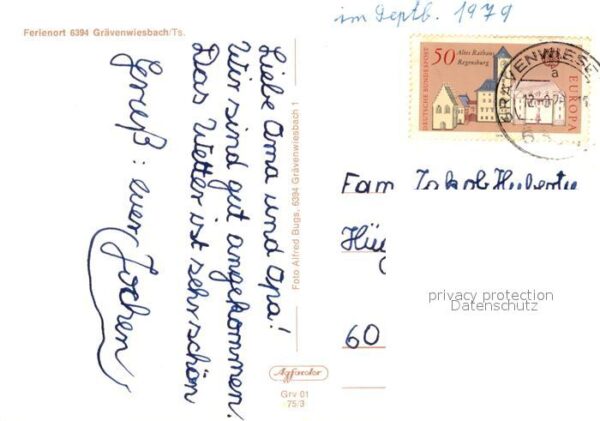 Ferienort 6394 Grävenwiesbach/Ts.
im Septb. 1979
50
Altes Rathaus
Regensburg
DEUTSCHE BUNDESPOST
EUROPA
GRÄVENWIESB
a
Liebe Oma und Opa!
Wir sind gut angekommen.
Das Wetter ist sehr schön
Gruß: euer Jochen
Foto Alfred Bugs, 6394 Grävenwiesbach 1
Fam. Jakob Hubertu
Hüg
60
privacy protection
Datenschutz
Agfacolor
Grv 01
75/3